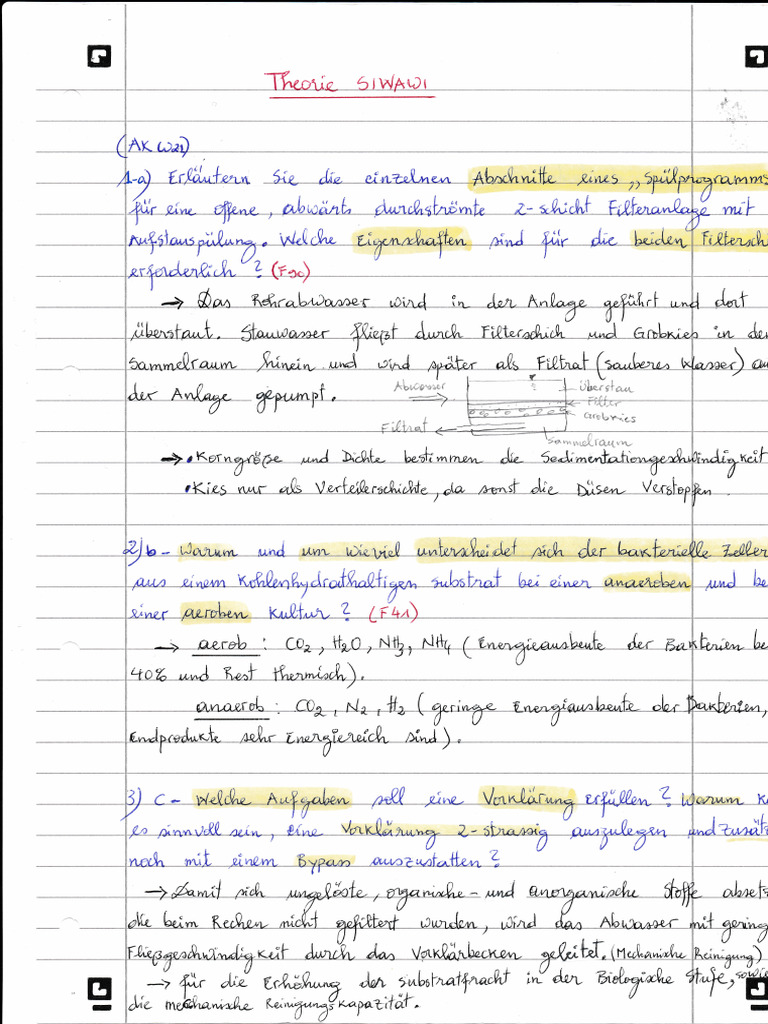 Theorie SIWAWI
(AK W21)
1-a) Erläutern Sie die einzelnen Abschnitte eines „Spülprogramms
für eine offene, abwärts durchströmte 2-schicht Filteranlage mit
Aufstauspülung. Welche Eigenschaften sind für die beiden Filterschi
erforderlich? (F90)
→ Das Rohrabwasser wird in der Anlage geführt und dort
überstaut. Stauwasser fließt durch Filterschich und Grobkies in den
Sammelraum hinein und wird später als Filtrat (sauberes Wasser) au
der Anlage gepumpt.
Abwasser
überstau
Filter
Grobkies
Filtrat
Sammelraum
→ • Korngröße und Dichte bestimmen die Sedimentationgeschwindigkeit
• Kies nur als Verteilerschichte, da sonst die Düsen Verstopfen.
2) b- Warum und um wieviel unterscheidet sich der bakterielle Zeller
aus einem Kohlenhydrathaltigen substrat bei einer anaeroben und be
einer aeroben Kultur? (F41)
→ aerob : CO2, H2O, NH3, NH4 (Energieausbeute der Bakterien be
40% und Rest thermisch).
anaerob : CO2, N2, H2 (geringe Energiausbeute der Bakterien,
Endprodukte sehr Energiereich sind).
3) c- Welche Aufgaben soll eine Vorklärung erfüllen? Warum k
es sinnvoll sein, eine Vorklärung 2-strassig auszulegen und zusät
noch mit einem Bypass auszustatten?
→ Damit sich ungelöste, organische- und anorganische Stoffe absetz
die beim Rechen nicht gefiltert wurden, wird das Abwasser mit gering
Fließgeschwindigkeit durch das Vorklärbecken geleitet. (Mechanische Reinigung)
→ für die Erhöhung der substratfracht in der Biologische Stufe, sowie
die mechanische Reinigungskapazität.